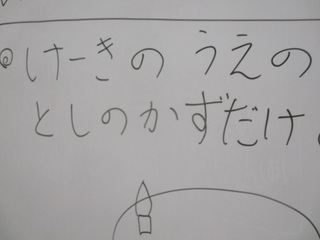 けーきの うえの
としのかずだけ。